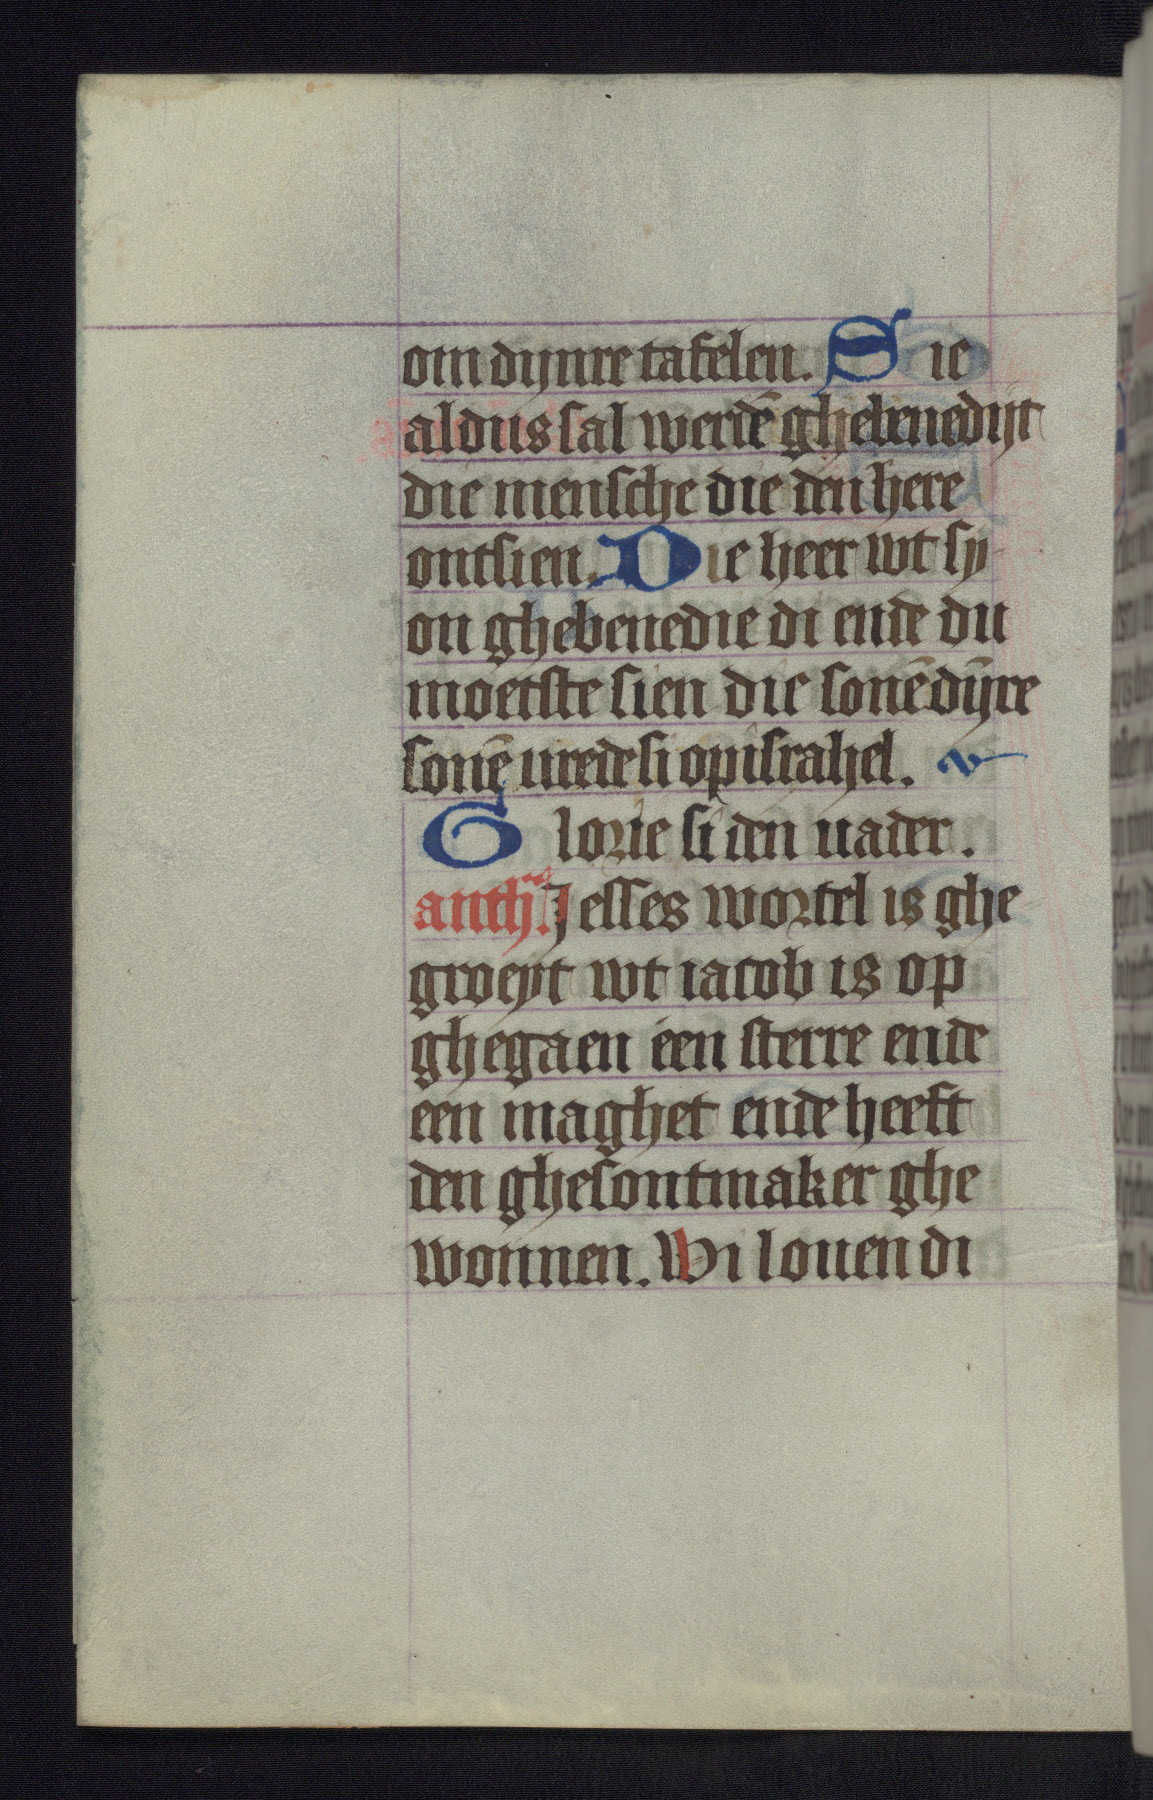 om dijnre tafelen. Sie
aldus sal werdē ghebenedijt
die mensche die den here
ontsien. Die heer wt sy
on ghebenedie di ende du
moetste sien die sonē dijre
sonē urede si op israhel.
Glorie si den uader.
anthᵃ. Jesses wortel is ghe
groeyt wt iacob is op
ghegaen een sterre ende
een maghet ende heeft
den ghesontmaker ghe
wonnen. Wi louen di